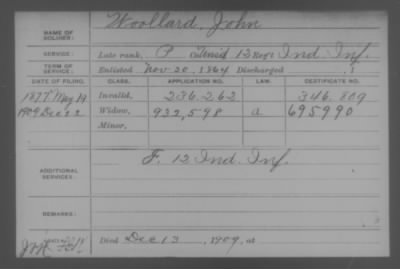 NAME OF SOLDIER: Woollard, John
SERVICE: Late rank, P 12 Reg't Ind. Inf.
TERM OF SERVICE: Enlisted Nov. 20, 1864 Discharged , 1
DATE OF FILING. CLASS. APPLICATION NO. LAW. CERTIFICATE NO.
1877 May 19 Invalid, 236.262 346.809
1909 Dec 22 Widow, 932,598 a 695990
Minor,
ADDITIONAL SERVICES: F. 12 Ind. Inf.
REMARKS:
Died Dec 13, 1909, at